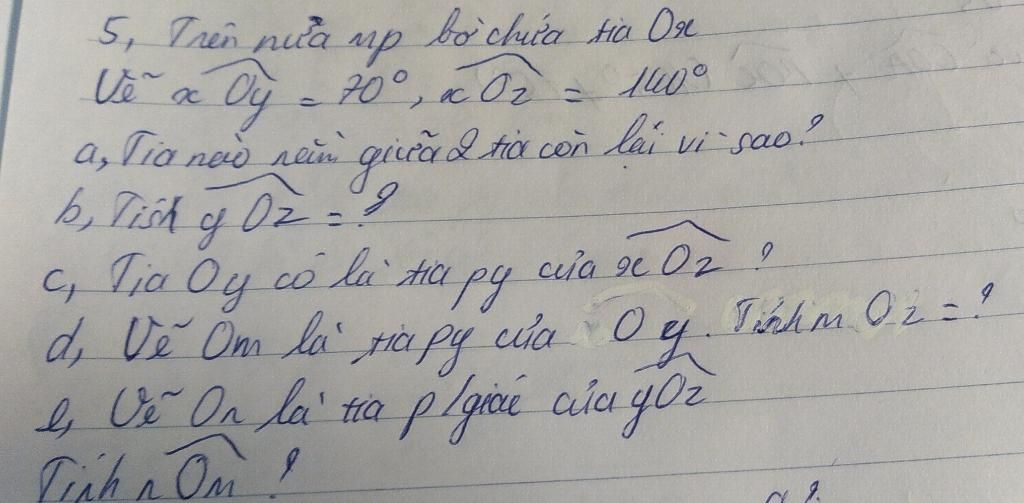 5, Trên nửa mp bờ chứa tia Ox
Vẽ xOy = 70°, xOz = 140°
a, Tia nào nằm giữa 2 tia còn lại vì sao?
b, Tính yOz = ?
c, Tia Oy có là tia pg của xOz ?
d, Vẽ Om là tia pg của Oy. Tính mOz = ?
e, Vẽ On là tia p/giác của yOz
Tính nOm ?